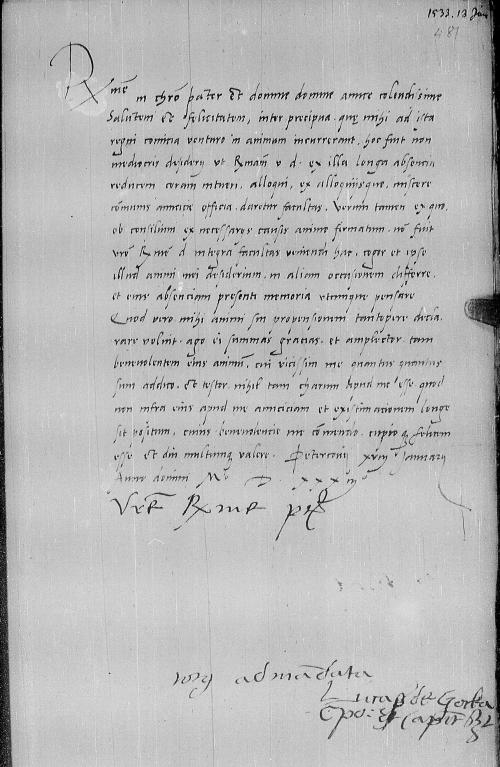 1533. 13 Jan
481
Rme in chro pater et domine domine amice colendissime
Salutem et felicitatem, inter precipua, que mihi ad ista
regni comicia venturo in animum incurrerant, hoc fuit non
mediocris desiderij vt Rmam v d. ex illa longa absencia
reducem coram intueri, alloqui, ex alloquijsque, miscere
comunis amicicie officia daretur facultas. Verum tamen ex quo,
ob consilium ex necessarijs causis animo firmatum, non fuit
vre Rme d integra facultas veniendi hac, cogor et ipse
illud animi mei desiderium, in aliam occasionem differre,
et eius absenciam presenti memoria vtcunque pensare
Quod vero mihi animi sui propensionem tantopere decla,
rare voluit, ago ei summas gracias, et amplector tam
benevolentem eius animum, cui vicissim me quantus quantus
sum addico, Et testor nihil tam charum apud me esse, quod
non infra eius apud me amiciciam et existimacionem longe
sit positum, cuius benevolencie me comendo, cupio q felicem
esse et diu multumq valere. Petercovie xviij Januarij
Anno domini Mo D xxxiijo
Vre Rme p
ad mandata
Lucas de Gorka
et Capit